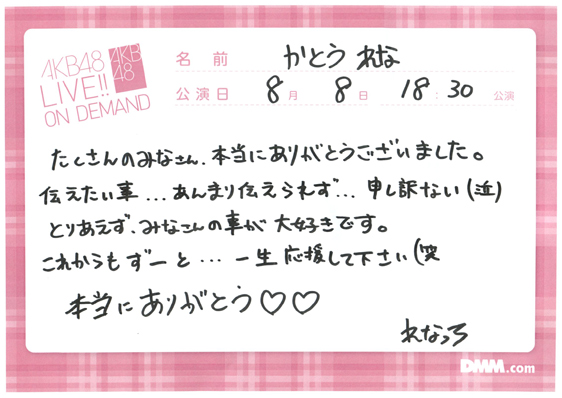 AKB48
LIVE!!
ON DEMAND
AKB
48
名前 かとう れな
公演日 8月 8日 18:30 公演
たくさんのみなさん、本当にありがとうございました。
伝えたい事...あんまり伝えられず...申し訳ない(辺)
とりあえず、みなさんの事が大好きです。
これからもずーと...一生応援して下さい(笑
本当にありがとう♡♡
れなっち
DMM.com